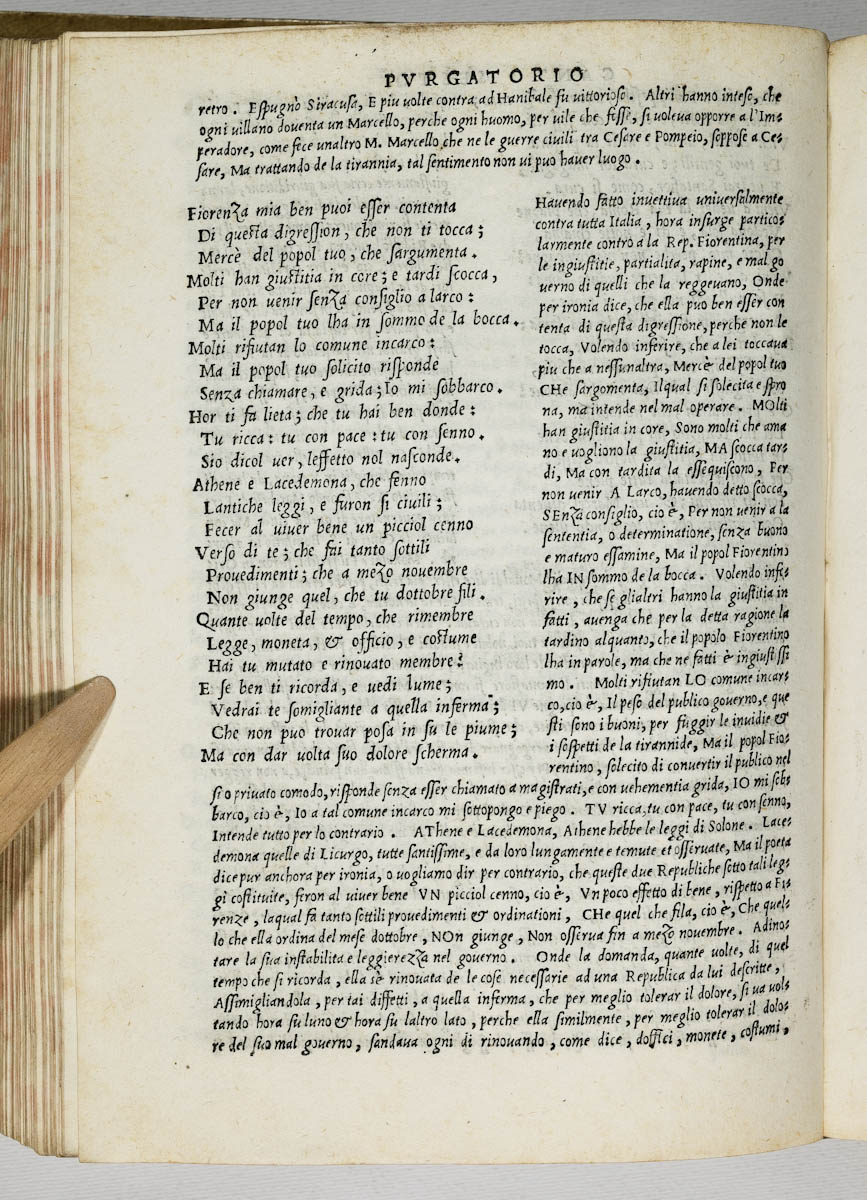 PVRGATORIO
retro. Espugnò Siracusa, E piu volte contra ad Hanibale fu vittorioso. Altri hanno inteso, che
ogni villano doventa un Marcello, perche ogni huomo, per vile che fosse, si voleva opporre a l'Im-
peradore, come fece unaltro M. Marcello che ne le guerre civili tra Cesare e Pompeio, soppose a Ce-
sare, Ma trattando de la tirannia, tal sentimento non ui puo haver luogo.
Fiorenza mia ben puoi esser contenta
Di questa digression, che non ti tocca;
Mercè del popol tuo, che sargumenta.
Molti han giustitia in core; e tardi scocca,
Per non uenir senza consiglio a larco:
Ma il popol tuo lha in sommo de la bocca.
Molti rifiutan lo comune incarco:
Ma il popol tuo solicito risponde
Senza chiamare, e grida; Io mi sobbarco.
Hor ti fa lieta; che tu hai ben donde:
Tu ricca: tu con pace: tu con senno.
Sio dicol uer, leffetto nol nasconde.
Athene e Lacedemona, che fenno
Lantiche leggi, e furon si ciuili;
Fecer al uiuer bene un picciol cenno
Verso di te; che fai tanto sottili
Prouedimenti; che a mezo novembre
Non giunge quel, che tu dottobre fili.
Quante uolte del tempo, che rimembre
Legge, moneta, & officio, e costume
Hai tu mutato e rinouato membre?
E se ben ti ricorda, e uedi lume;
Vedrai te somigliante a quella inferma;
Che non puo trouar posa in su le piume;
Ma con dar uolta suo dolore scherma.
Havendo fatto invettiva universalmente
contra tutta Italia, hora insurge partico-
larmente contro a la Rep. Fiorentina, per
le ingiustitie, partialita, rapine, e mal go
uerno di quelli che la reggevano, Onde
per ironia dice, che ella puo ben esser con
tenta di questa digressione, perche non le
tocca, Volendo inferire, che a lei toccaua
piu che a nessunaltra, Mercè del popol tuo
CHe sargomenta, Ilqual si solecita e spro
na, ma intende nel mal operare. MOlti
han giustitia in core, Sono molti che ama
no e uogliono la giustitia, MA scocca tar-
di, Ma con tardita la essequiscono, Per
non uenir A Larco, havendo detto scocca,
SEnza consiglio, cio è, Per non uenir a la
sententia, o determinatione, senza buono
e maturo essamine, Ma il popol Fiorentino
lha IN sommo de la bocca. Volendo infe-
rire, che se glialtri hanno la giustitia in
fatti, auenga che per la detta ragione la
tardino alquanto, che il popolo Fiorentino
lha in parole, ma che ne fatti è ingiustissi
mo. Molti rifiutan LO comune incar-
co, cio è, Il peso del publico governo, e que
sti sono i buoni, per fuggir le inuidie &
i sospetti de la tirannide, Ma il popol Fio-
rentino, solecito di convertir il publico nel
si o privato comodo, risponde senza esser chiamato a magistrati, e con uehementia grida, IO mi sob-
barco, cio è, Io a tal comune incarco mi sottopongo e piego. TV ricca, tu con pace, tu con senno,
Intende tutto per lo contrario. AThene e Lacedemona, Athene hebbe le leggi di Solone. Lace-
demona quelle di Licurgo, tutte santissime, e da loro lungamente e temute et osseruate, Ma il poeta
dice pur anchora per ironia, o uogliamo dir per contrario, che queste due Republiche sotto tali leg-
gi costituite, feron al uiuer bene VN picciol cenno, cio è, Vn poco effetto di bene, rispetto a Fi-
renze, laqual fa tanto sottili prouedimenti & ordinationi, CHe quel che fila, cio è, Che quel-
lo che ella ordina del mese dottobre, NOn giunge, Non osserua fin a mezo novembre. Adino-
tare la sua instabilita e leggierezza nel governo. Onde la domanda, quante uolte, di quel
tempo che si ricorda, ella sè rinouata de le cose necessarie ad una Republica da lui descritte,
Assimigliandola, per tai diffetti, a quella inferma, che per meglio tolerar il dolore, si ua uol-
tando hora su luno & hora su laltro lato, perche ella similmente, per meglio tolerar il dolo-
re del suo mal governo, sandaua ogni di rinouando, come dice, doffici, monete, costumi,